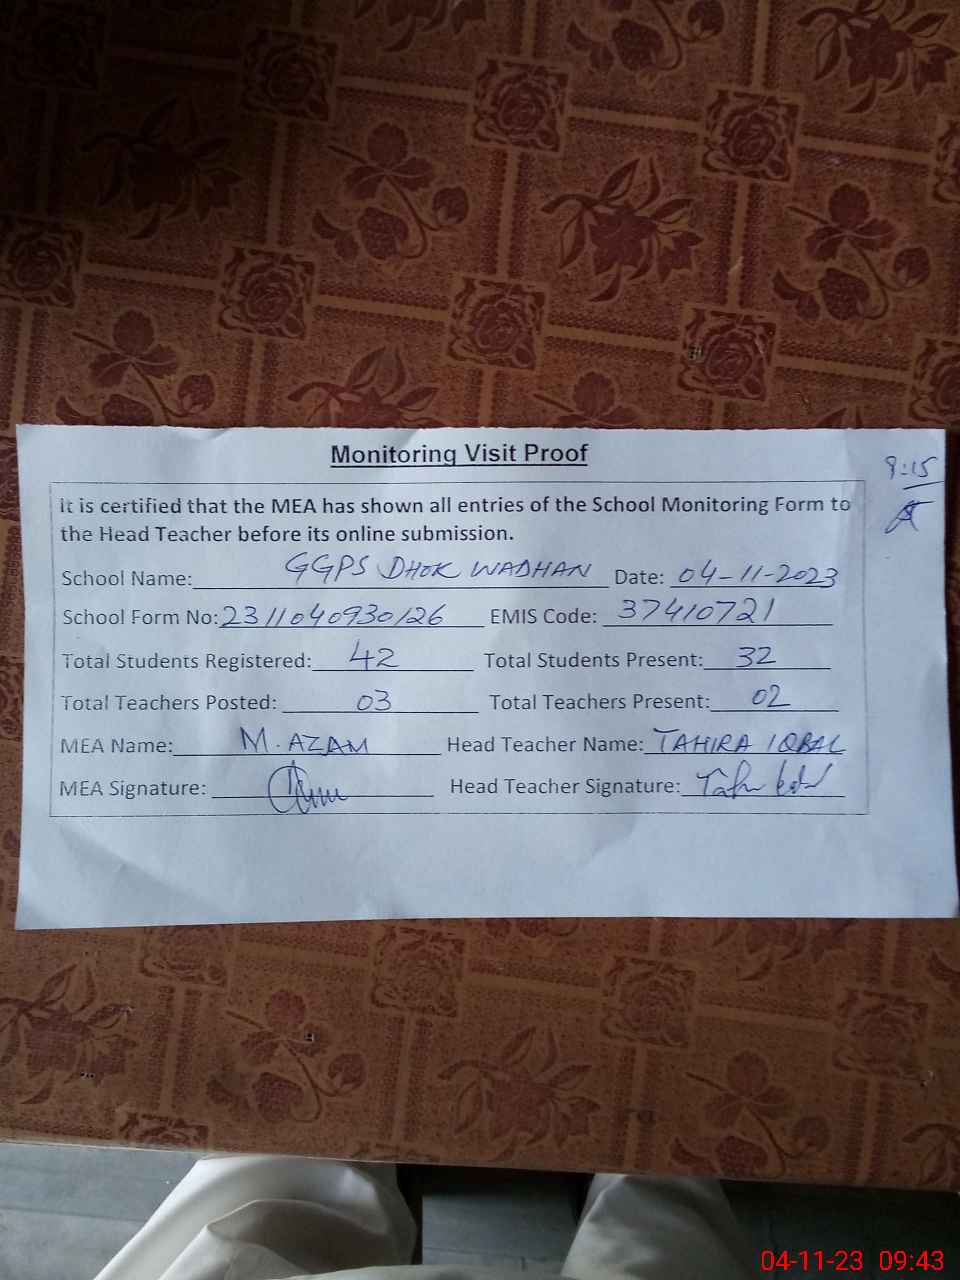 Monitoring Visit Proof
9:15
It is certified that the MEA has shown all entries of the School Monitoring Form to
the Head Teacher before its online submission.
School Name: GGPS DHOK WADHAN Date: 04-11-2023
School Form No: 231104093026 EMIS Code: 37410721
Total Students Registered: 42 Total Students Present: 32
Total Teachers Posted: 03 Total Teachers Present: 02
MEA Name: M. AZAM Head Teacher Name: TAHIRA IQBAL
MEA Signature: Head Teacher Signature:
04-11-23 09:43